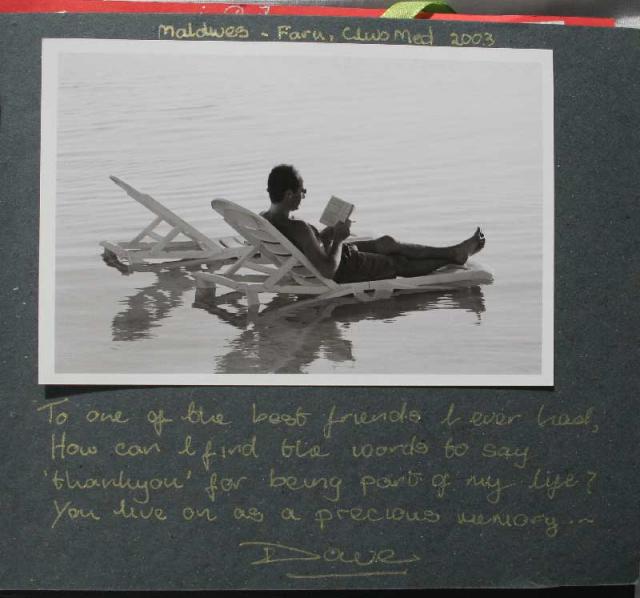 Maldives - Faru, Club Med 2003
To one of the best friends I ever had,
How can I find the words to say
'thankyou' for being part of my life?
You live on as a precious memory...~
Dave